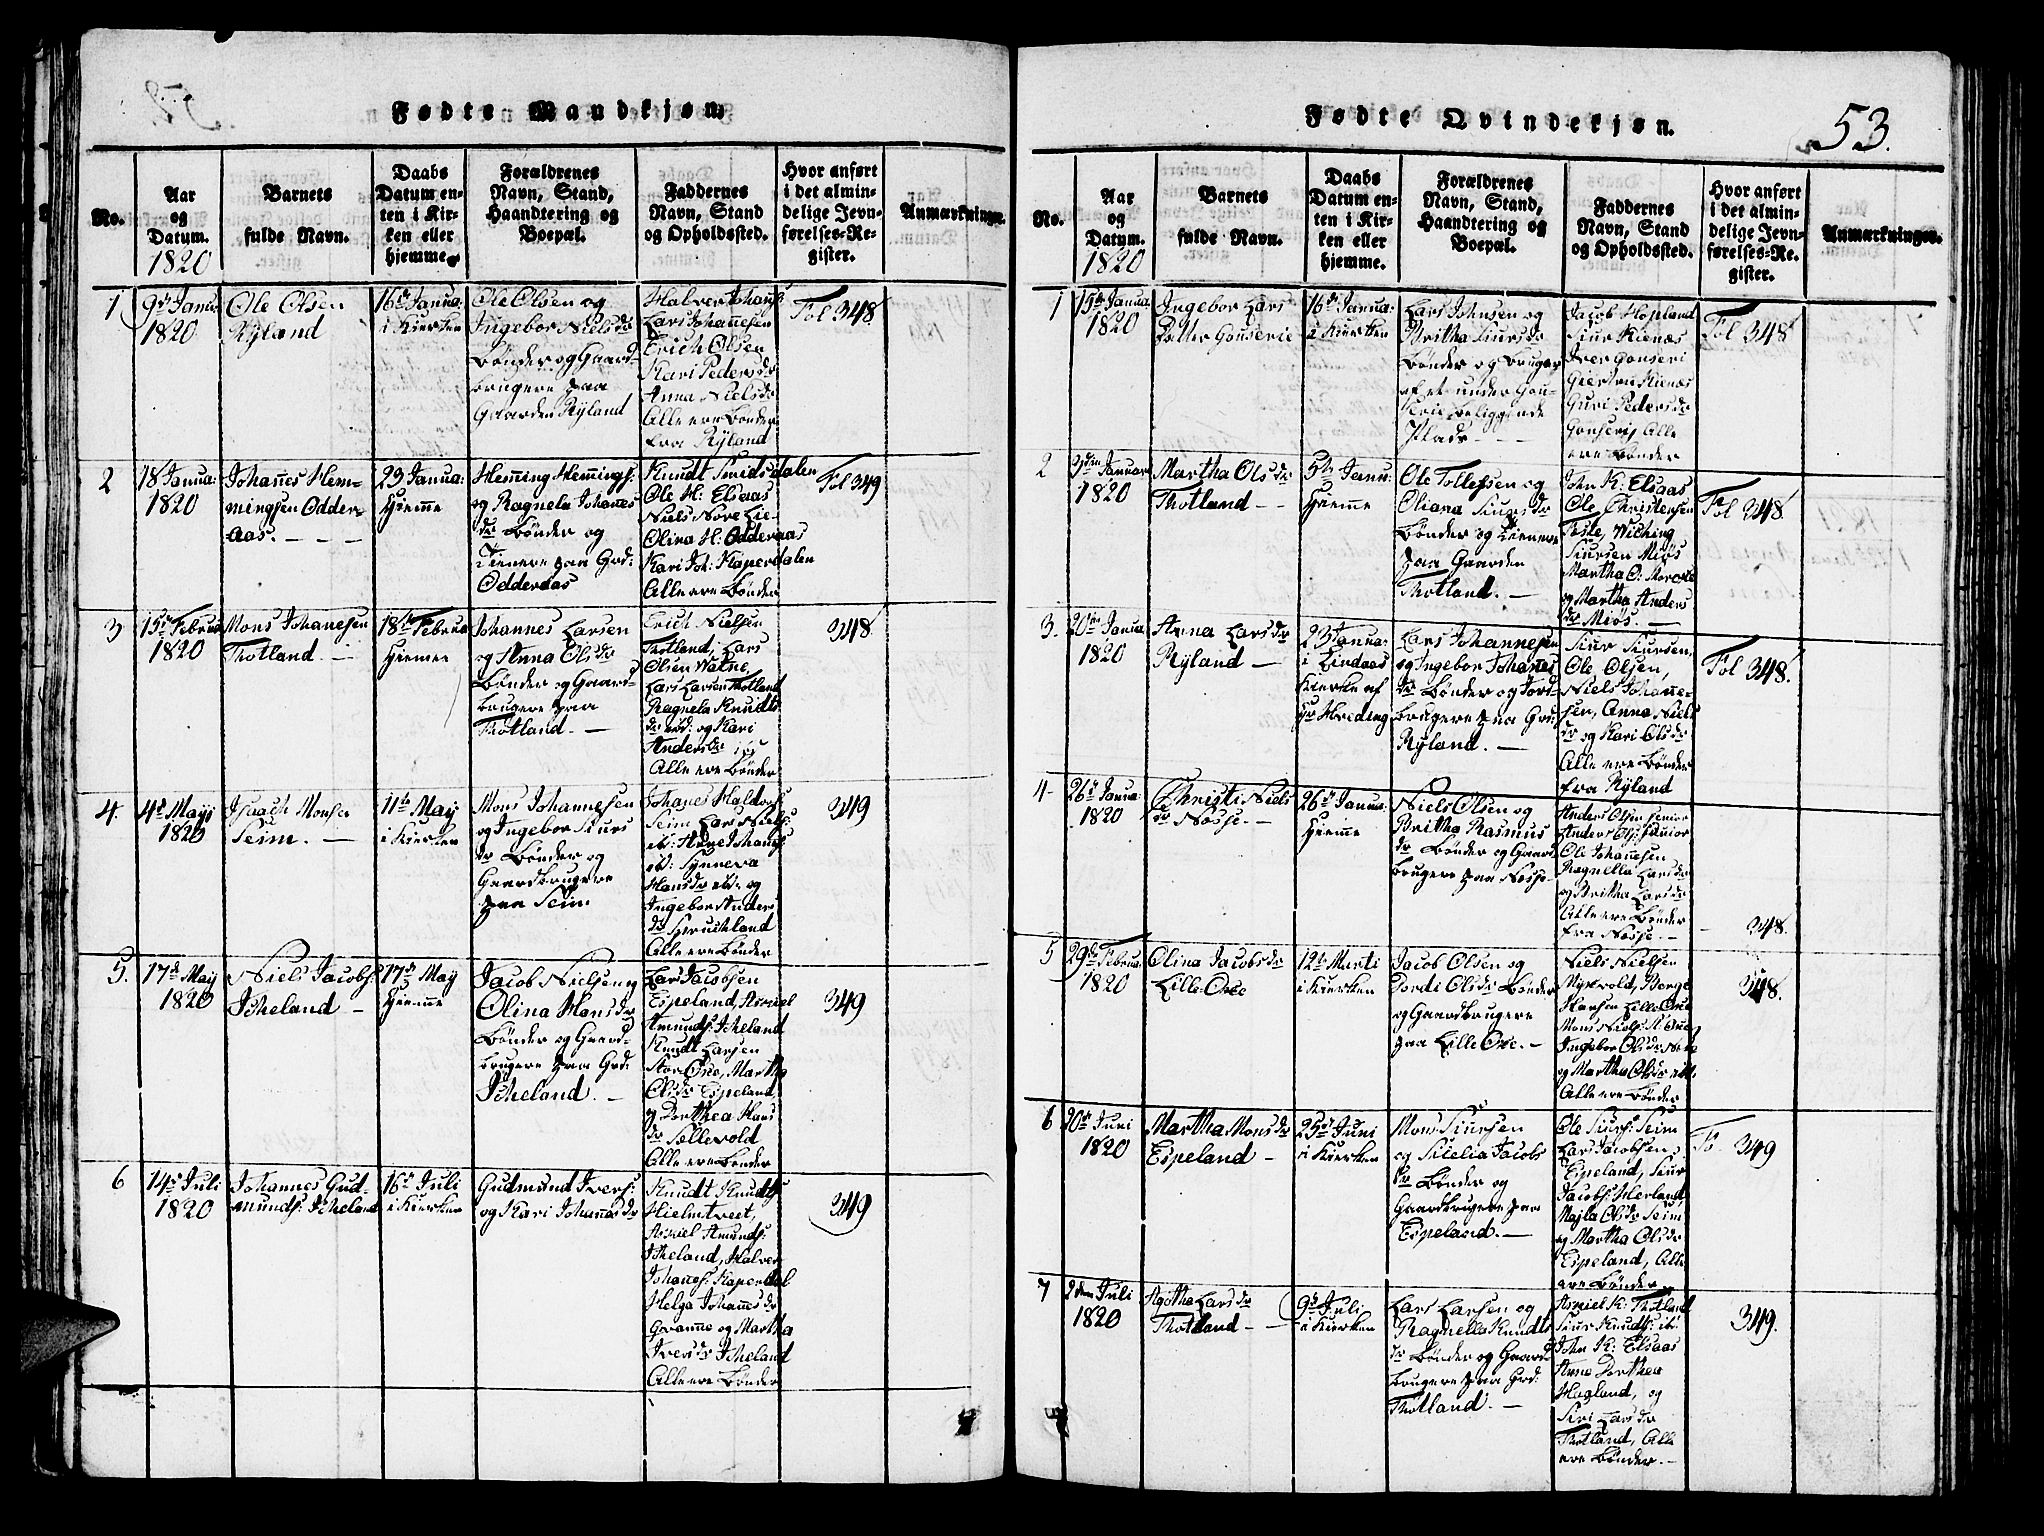 Fødte Mandkjøn
No.
Aar
og
Datum.
1820
Barnets
fulde Navn.
Daabs
Datum en-
ten i Kir-
ken eller
hjemme.
Forældrenes
Navn, Stand,
Haandtering og
Boepæl.
Faddernes
Navn, Stand
og Opholdssted.
Hvor anført
i det almin-
delige Jevn-
førelses-Re-
gister.
Anmærkninger.
1
9de Janu:
1820
Ole Olsen
Ryland
16de Janua:
i Kierken
Ole Olsen og
Ingebor Nielsdr
Bønder og Gaard-
brugere paa
Gaarden Ryland
Halver Johans
Lars Johannesen
Erich Olsen
Kari Pedersdr
Anna Nielsdr
Alle ere Bønder
fra Ryland
Fol 348
2
18 Janua:
1820
Johañes Hem-
mingsen Odder-
aas.
23 Janua:
Hieme
Heming Hemings:
og Ragnela Johañes
dr Bønder og
Tienere paa Grd:
Odderaas
Knudt Smidsdalen
Ole H: Elsaas
Niels Nore Lie
Olina H: Odderaas
Kari Joh: Kaperdalen
Alle ere Bønder
Fol 349
3
15de Februa
1820
Mons Johanesen
Thotland
18de Februa
Hieme
Johannes Larsen
og Anna Olsdr
Bønder og Gaard-
brugere paa
Thotland.
Erich Nielsen
Thotland, Lars
Olsen Watne,
Lars Larsen Thotland
Ragnela Knudts
dr ibd: og Kari
Andersdr
Alle ere Bønder
348
4.
4de Mayi
1820
Isaach Monsen
Seim.
11te May
i Kierken
Mons Johannesen
og Ingebor Siurs
dr Bønder og
Gaardbrugere
paa Seim
Johanes Haldors
Seim Lars Niels:
Synneva
Hansdr ibd: og
Ingebor Anders
dr
Alle ere Bønder
349
5.
17de May
1820
Niels Jacobs:
Icheland
17de May
Hieme
Jacob Nielsen og
Olina Monsdr
Bønder og Gaard-
brugere paa Grd:
Icheland.
Lars Jacobsen
Espeland, Asmiel
Amunds: Icheland
Knudt Larsen
Stor Oxe, Martha
Olsdr Espeland,
og Dorthea Hans
dr Sællevold
Alle ere Bønder
349
6
14de Juli
1820
Johannes Gud-
munds: Icheland
16de Juli
i Kierken
Gudmund Ivers:
og Kari Johanesdr
Knudt Knudts
Hielmtveet,
Asmiel Amunds:
Icheland, Halver
Johans: Kaperdal
Helga Johañesdr
Gramme og Martha
Iversdr Icheland
Alle ere Bønder
349
Fødte Qvindekjøn.
53.
No.
Aar
og
Datum.
1820
Barnets
fulde Navn.
Daabs
Datum en-
ten i Kir-
ken eller
hjemme.
Forældrenes
Navn, Stand,
Haandtering og
Boepæl.
Faddernes
Navn, Stand
og Opholdssted.
Hvor anført
i det almin-
delige Jevn-
førelses-Re-
gister.
Anmærkninger.
1
15de Janua
1820
Ingebor Lars
Datter Gonserie
16de Janua:
i Kierken
Lars Johnsen og
Britha Siursdr
Bønder og bruger
af et under Gon-
serie beliggende
Plads
Jacob Hopland
Siur Kienæs
Iver Gonseri
Giertru Kienæs
Guri Pedersdr
Gonseri, Alle
ere Bønder
Fol 348
2
3den Januar
1820
Martha Olsdr
Thotland
5te Janu:
Hieme
Ole Tollefsen og
Oliana Siursdr
Bønder og Tienere
paa Gaarden
Thotland.
John K: Elsaas
Ole Christensen
Feste, Wiching
Siursen Miøs
Martha O:
og Martha Anders
dr Miøs.
Fol 348
3.
20de Janua
1820
Anna Larsdr
Ryland
23 Janua:
i Lindaas
Kierke af
Hr Hveding
Lars Johannesen
og Ingebor Johañes
dr Bønder og Jord-
brugere paa Grd:
Ryland.
Siur Siursen,
Ole Olsen,
Niels Johañe-
sen, Anna Niels
dr og Kari Olsdr
Alle ere Bønder
fra Ryland
Fol 348.
4
26de Janua:
1820
Christi Niels
dr Næsse.
26de Janua:
Hieme
Niels Olsen og
Britha Rasmus
dr Bønder og Gaard
brugere paa Næsse
Anders Olsen senior
Anders Ols: junior
Ole Johañesen
Ragnella Larsdr
og Britha Larsdr
Alle ere Bønder
fra Næsse.
348.
5
29de Februa
1820
Olina Jacobsdr
Lille Oxe
12te Marti
i Kierken
Jacob Olsen og
Jordi Olsdr Bønder
og Gaardbrugere
paa Lille Oxe.
Niels Nielsen
Myxvold, Børge
Hansen Lille Oxe
Mons Niels: St Oxe
Ingebor Olsdr
og Martha Olsdr
Alle ere Bønder
348.
6
20de Juni
1820
Martha Monsdr
Espeland
25de Juni
i Kierken
Mons Siursen
og Sicelia Jacobs
dr Bønder og
Gaardbrugere paa
Espeland.
Ole Siurs: Seim
Lars Jacobsen
Espeland, Siur
Jacobs: Herland
Majla Olsdr Seim
og Martha Olsdr
Espeland, Alle
ere Bønder
Fo 349
7
2den Juli
1820
Agatha Larsdr
Thotland
9de Juli
i Kierken
Lars Larsen og
Ragnella Knudts
dr Bønder og Gaard
brugere paa Grd:
Thotland.
Asmiel K: Thotland
Siur Knudts: ib:
John K: Elsaas
Anne Dorthea
Hagland, og
Siri Larsdr
Thotland, Alle
ere Bønder.
349.